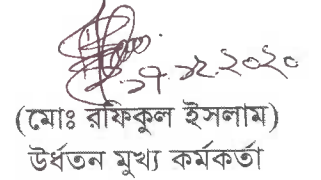 ১৭.১২.২০২০
(মোঃ রফিকুল ইসলাম)
উর্ধতন মুখ্য কর্মকর্তা